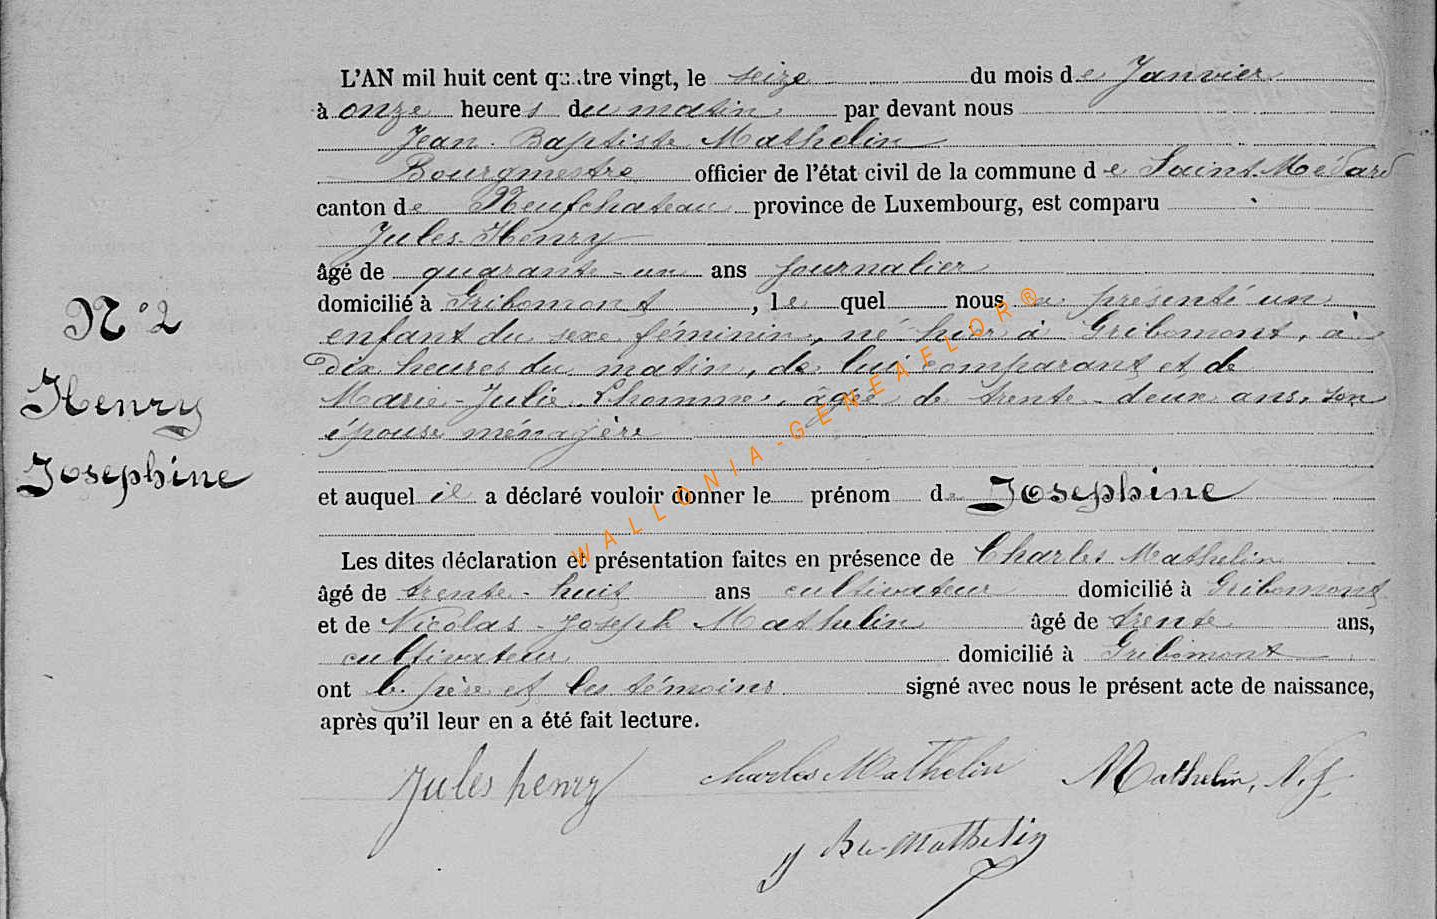 L'AN mil huit cent quatre vingt, le seize du mois de Janvier
à onze heures du matin par devant nous
Jean-Baptiste Mathelin
Bourgmestre officier de l'état civil de la commune de Saint-Médard
canton de Neufchateau province de Luxembourg, est comparu
Jules Henry
âgé de quarante-un ans journalier
domicilié à Gribomont, lequel nous a présenté un
enfant du sexe féminin, né hier à Gribomont, à
dix heures du matin, de lui comparant et de
Marie-Julie Lhomme, âgée de trente-deux ans, son
épouse ménagère
N° 2
Henry
Josephine
et auquel il a déclaré vouloir donner le prénom de Josephine
Les dites déclaration et présentation faites en présence de Charles Mathelin
âgé de trente-huit ans cultivateur domicilié à Gribomont
et de Nicolas-Joseph Mathelin âgé de trente ans,
cultivateur domicilié à Gribomont
ont le père et les témoins signé avec nous le présent acte de naissance,
après qu'il leur en a été fait lecture.
Jules henry Charles Mathelin Mathelin, N. J.
J Bte Mathelin
WALLONIA-GENEAELOR®